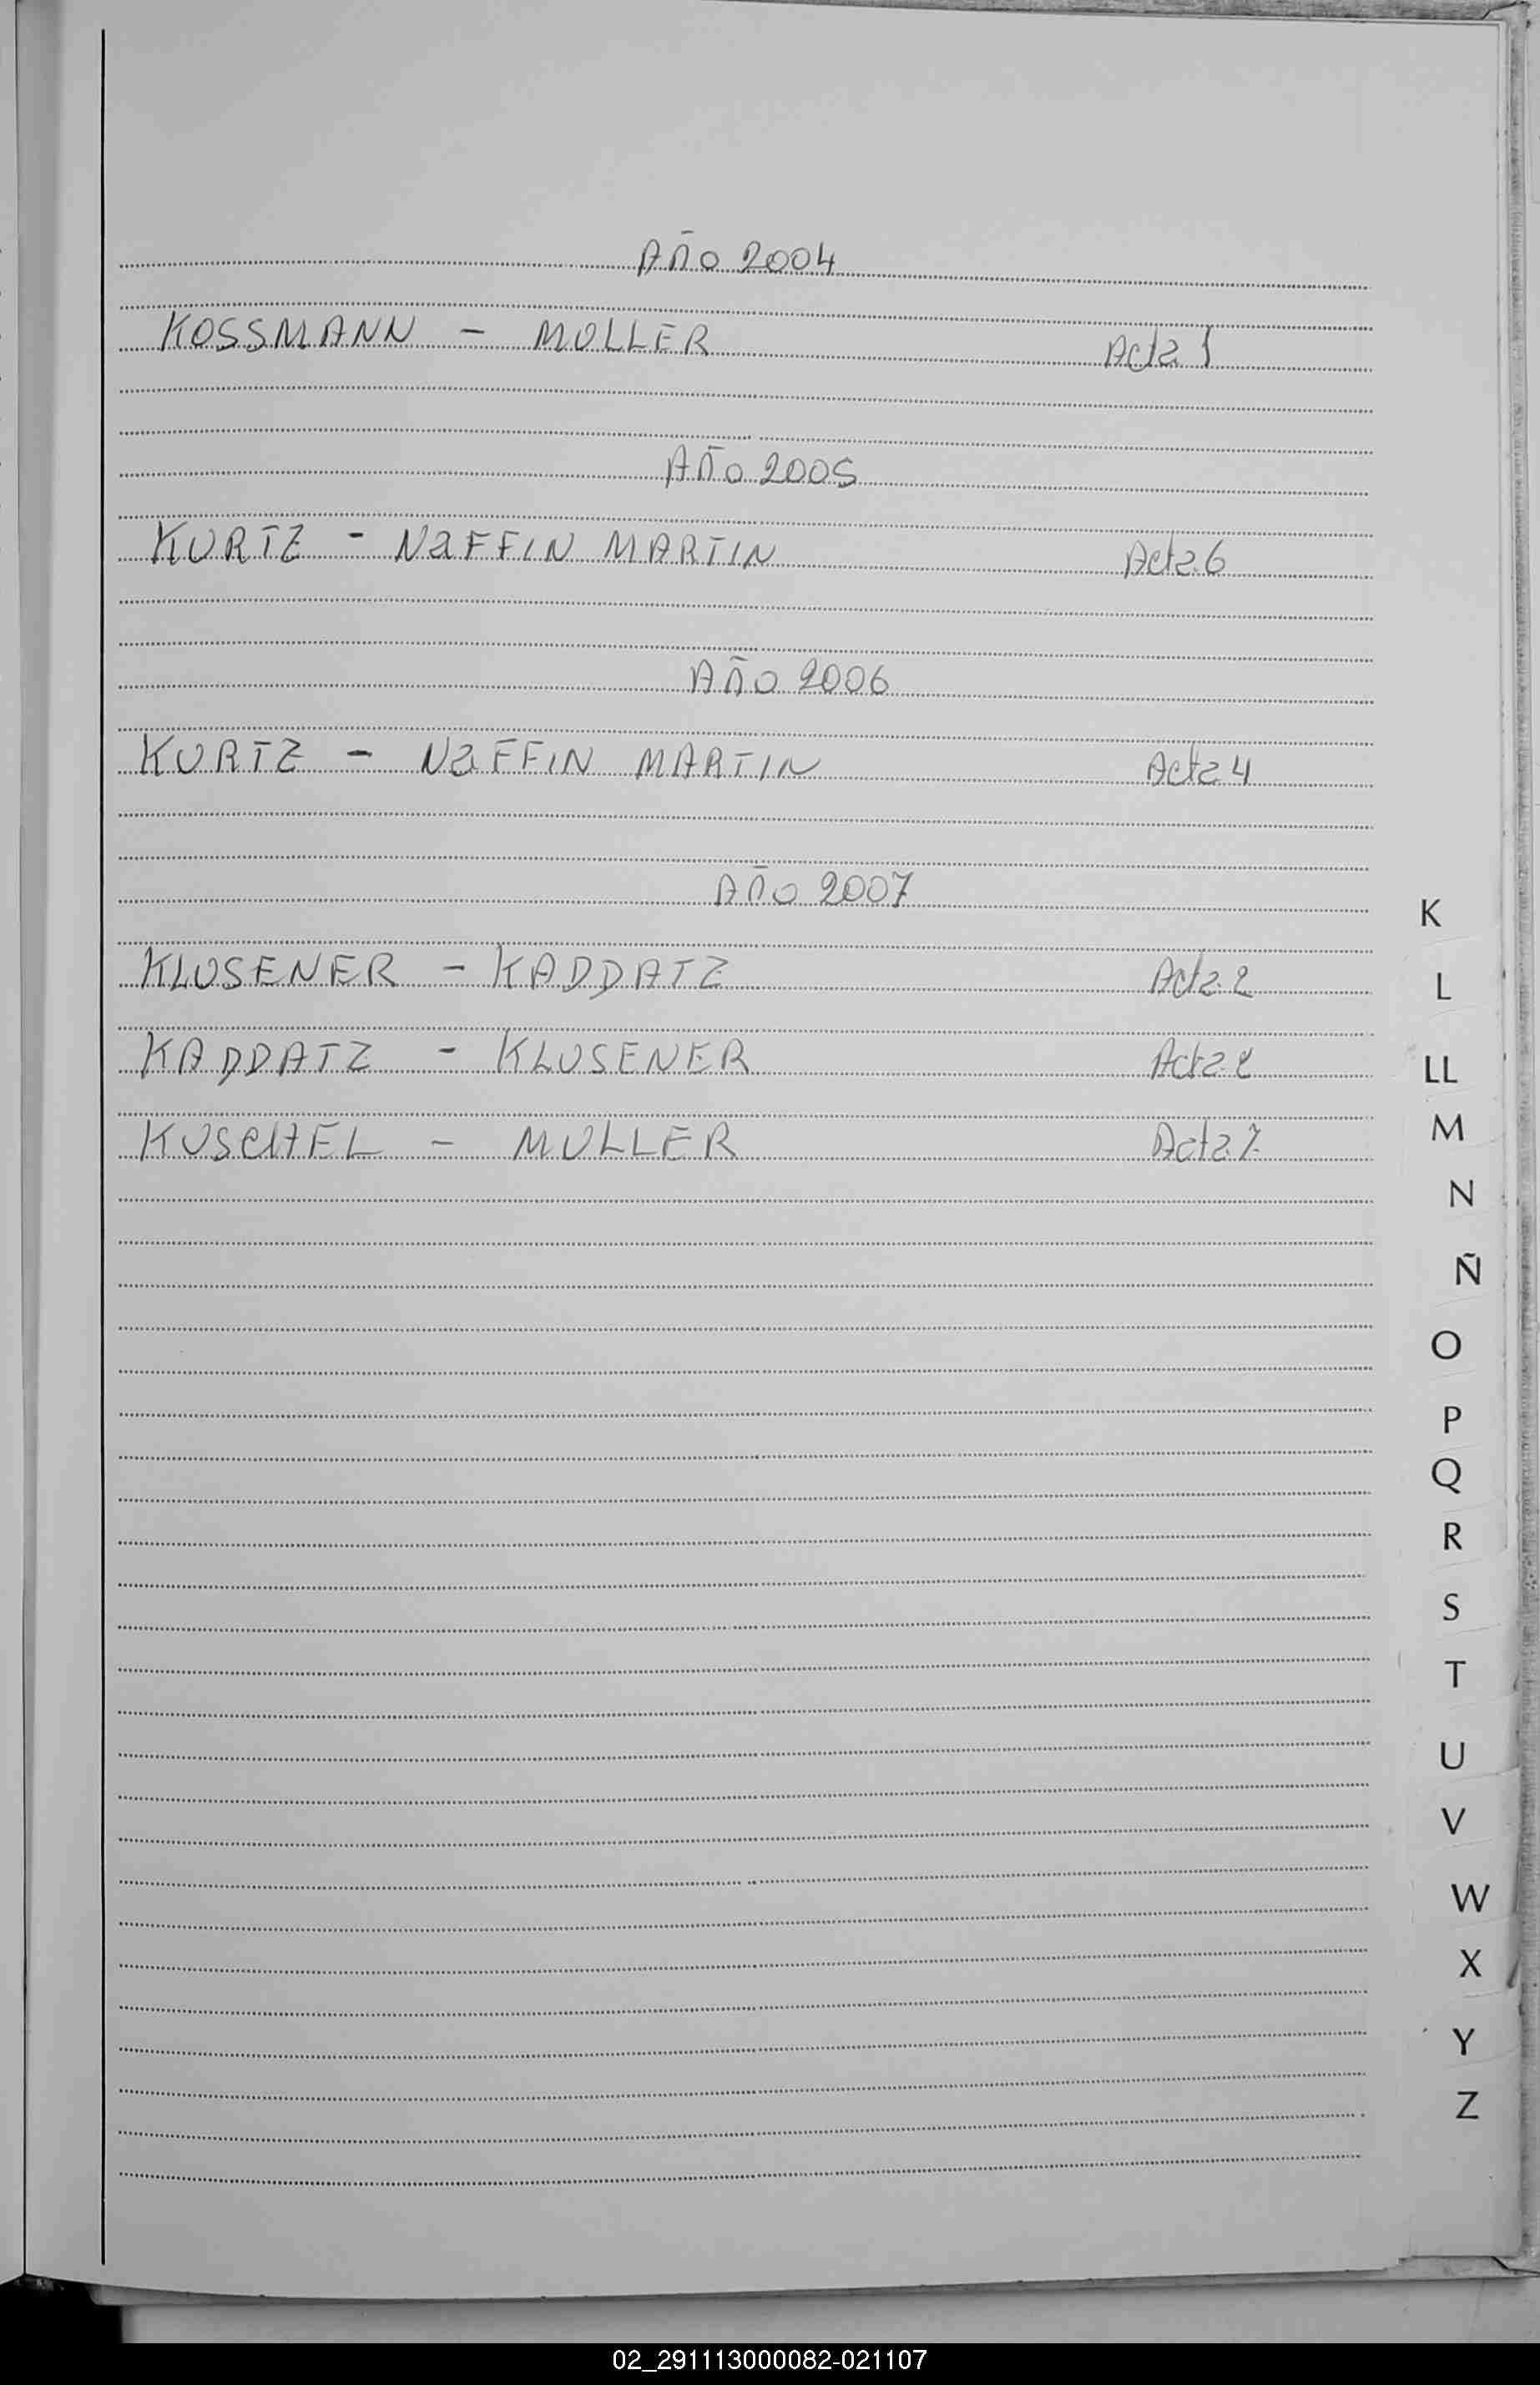 Año 2004
KOSSMANN - MULLER Acta 1
Año 2005
KURTZ - NaFFIN MARTIN Acta 6
Año 2006
KURTZ - NaFFIN MARTIN Acta 4
Año 2007
KLUSENER - KADDATZ Acta 2
KADDATZ - KLUSENER Acta 2
KUSCHEL - MULLER Acta 7
K
L
LL
M
N
Ñ
O
P
Q
R
S
T
U
V
W
X
Y
Z
02_291113000082-021107